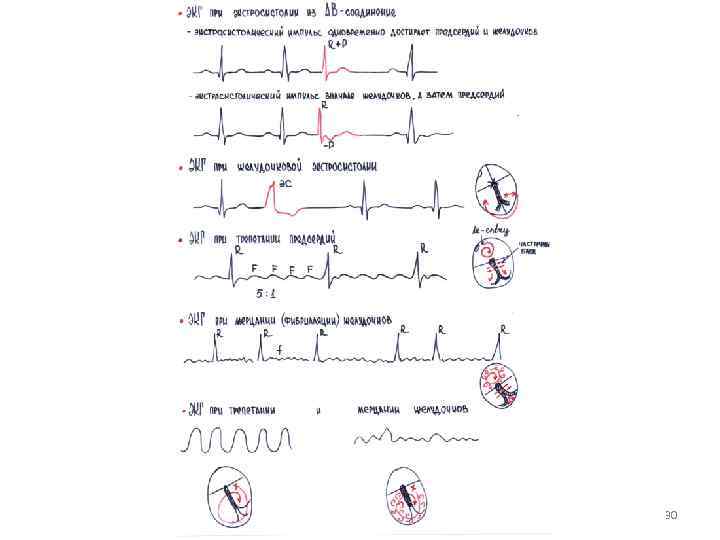 • ЭКГ при экстросистолии из АВ-соединение
- экстросистолический импульс одновременно достигает предсердий и желудочков
R+P
- экстросистолический импульс вначале желудочков, а затем предсердий
R
-P
• ЭКГ при желудочковой экстросистолии
ЭС
• ЭКГ при трепетании предсердий
R R R
F F F F
5:1
re-entry
частичная
• ЭКГ при мерцании (фибрилляции) желудочков
R R R R R R
f
• ЭКГ при трепетании и мерцании желудочков
90